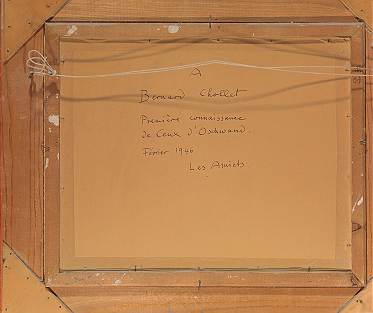 A
Bernard Chollet
Première connaissance
de Ceux d'Oschwand.
Février 1946
Les Amiets